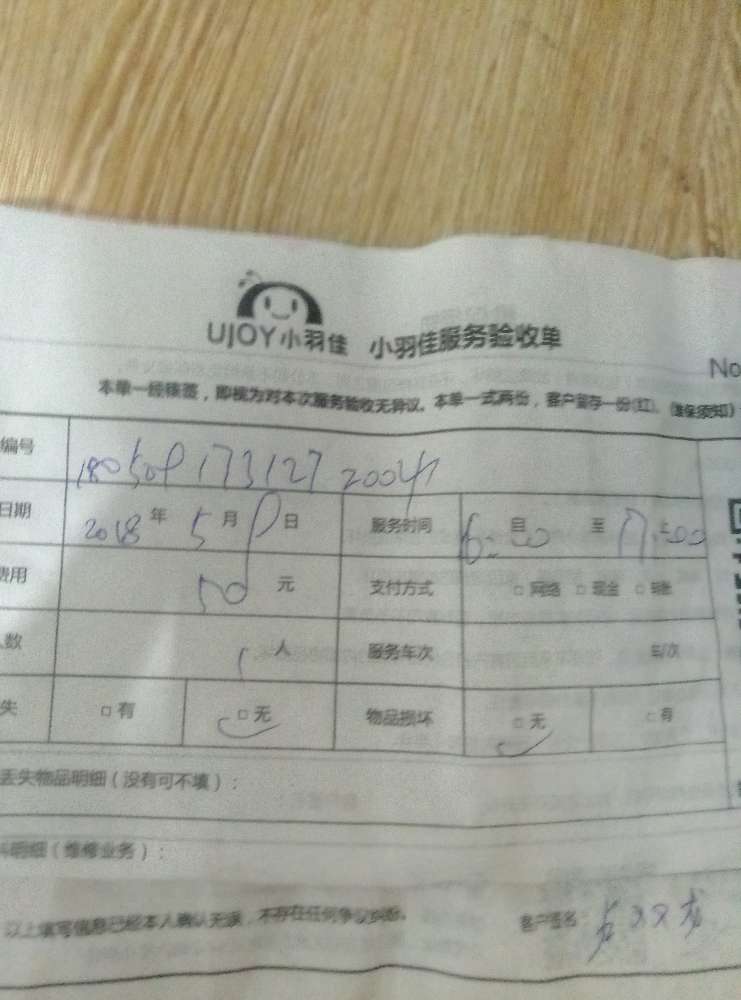 UJOY小羽佳 小羽佳服务验收单
No
本单一经核签，即视为对本次服务验收无异议。本单一式两份，客户留存一份(红)。(维保须知)
编号
日期 2018年5月9日 服务时间 16:00 自 至 17:00 止
费用 50元 支付方式 □网络 □现金 □转账
人数 1人 服务车次 车/次
失 □有 □无 物品损坏 □无 □有
丢失物品明细（没有可不填）：
料明细（维修业务）：
以上填写信息已经本人确认无误，不存在任何争议纠纷。 客户签名